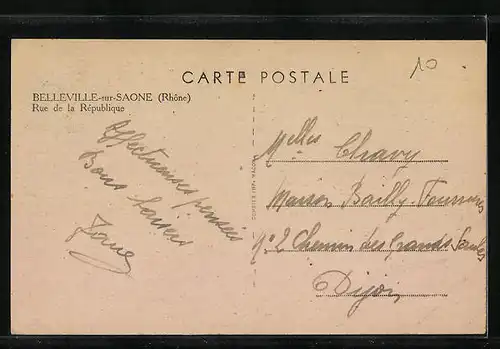 10
CARTE POSTALE
BELLEVILLE-sur-SAONE (Rhône)
Rue de la République
Affectueuses pensées
Bons baisers
Melles Chavy
Maison Bailly
N° 2 Chemin des Grands
Dijon